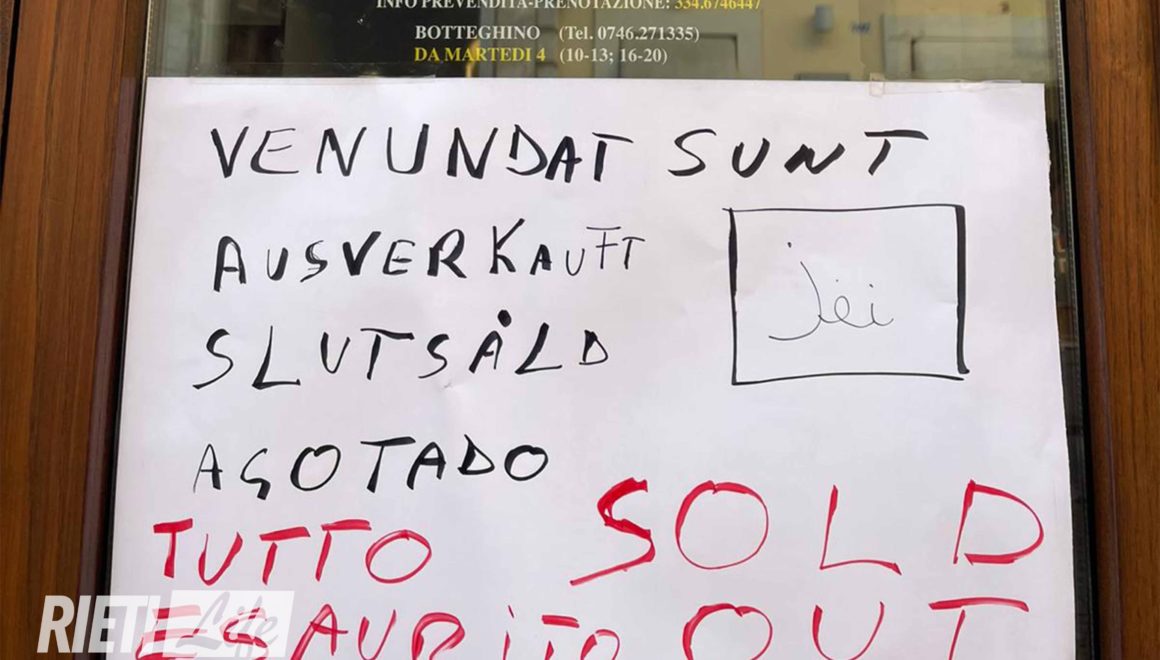 INFO PREVENDITA-PRENOTAZIONE: 334.6746447
BOTTEGHINO (Tel. 0746.271335)
DA MARTEDI 4 (10-13; 16-20)
VENUNDAT SUNT
AUSVERKAUFT
SLUTSÅLD
AGOTADO
TUTTO SOLD
ESAURITO OUT
RIETI Life